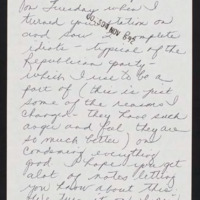 on Tuesday when I
turned your station on
and saw a complete
idiot - typical of the
Republican party -
which I use to be a
part of (this is just
some of the reasons I
change - they have such
anger and feel they are
so much better) one
condeming everything
good. I hope you get
alot of notes letting
you know about this -